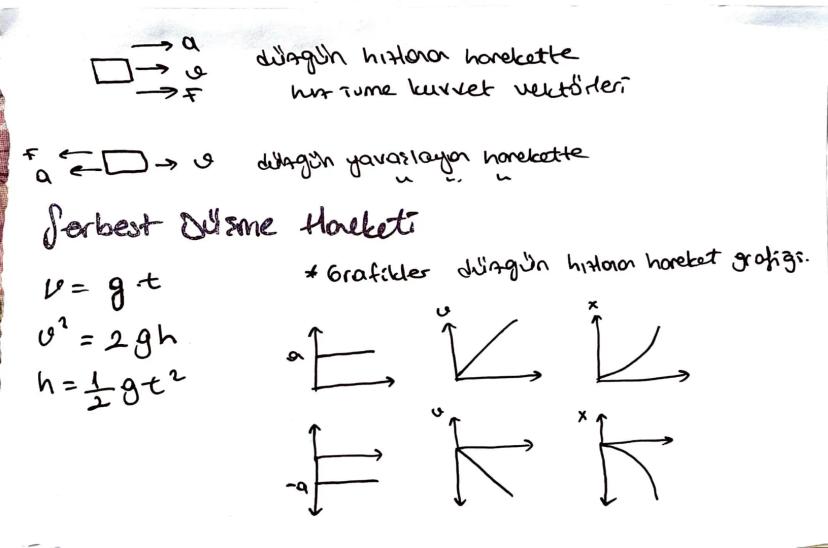 a
v
F
düzgün hızlanan harekette
hız ivme kuvvet vektörleri
F
a
v
düzgün yavaşlayan harekette
" " "
Serbest Düşme Hareketi
v = g t
v² = 2gh
h = 1/2 gt²
* Grafikler düzgün hızlanan hareket grafiği.
a
v
x
-a
v
x